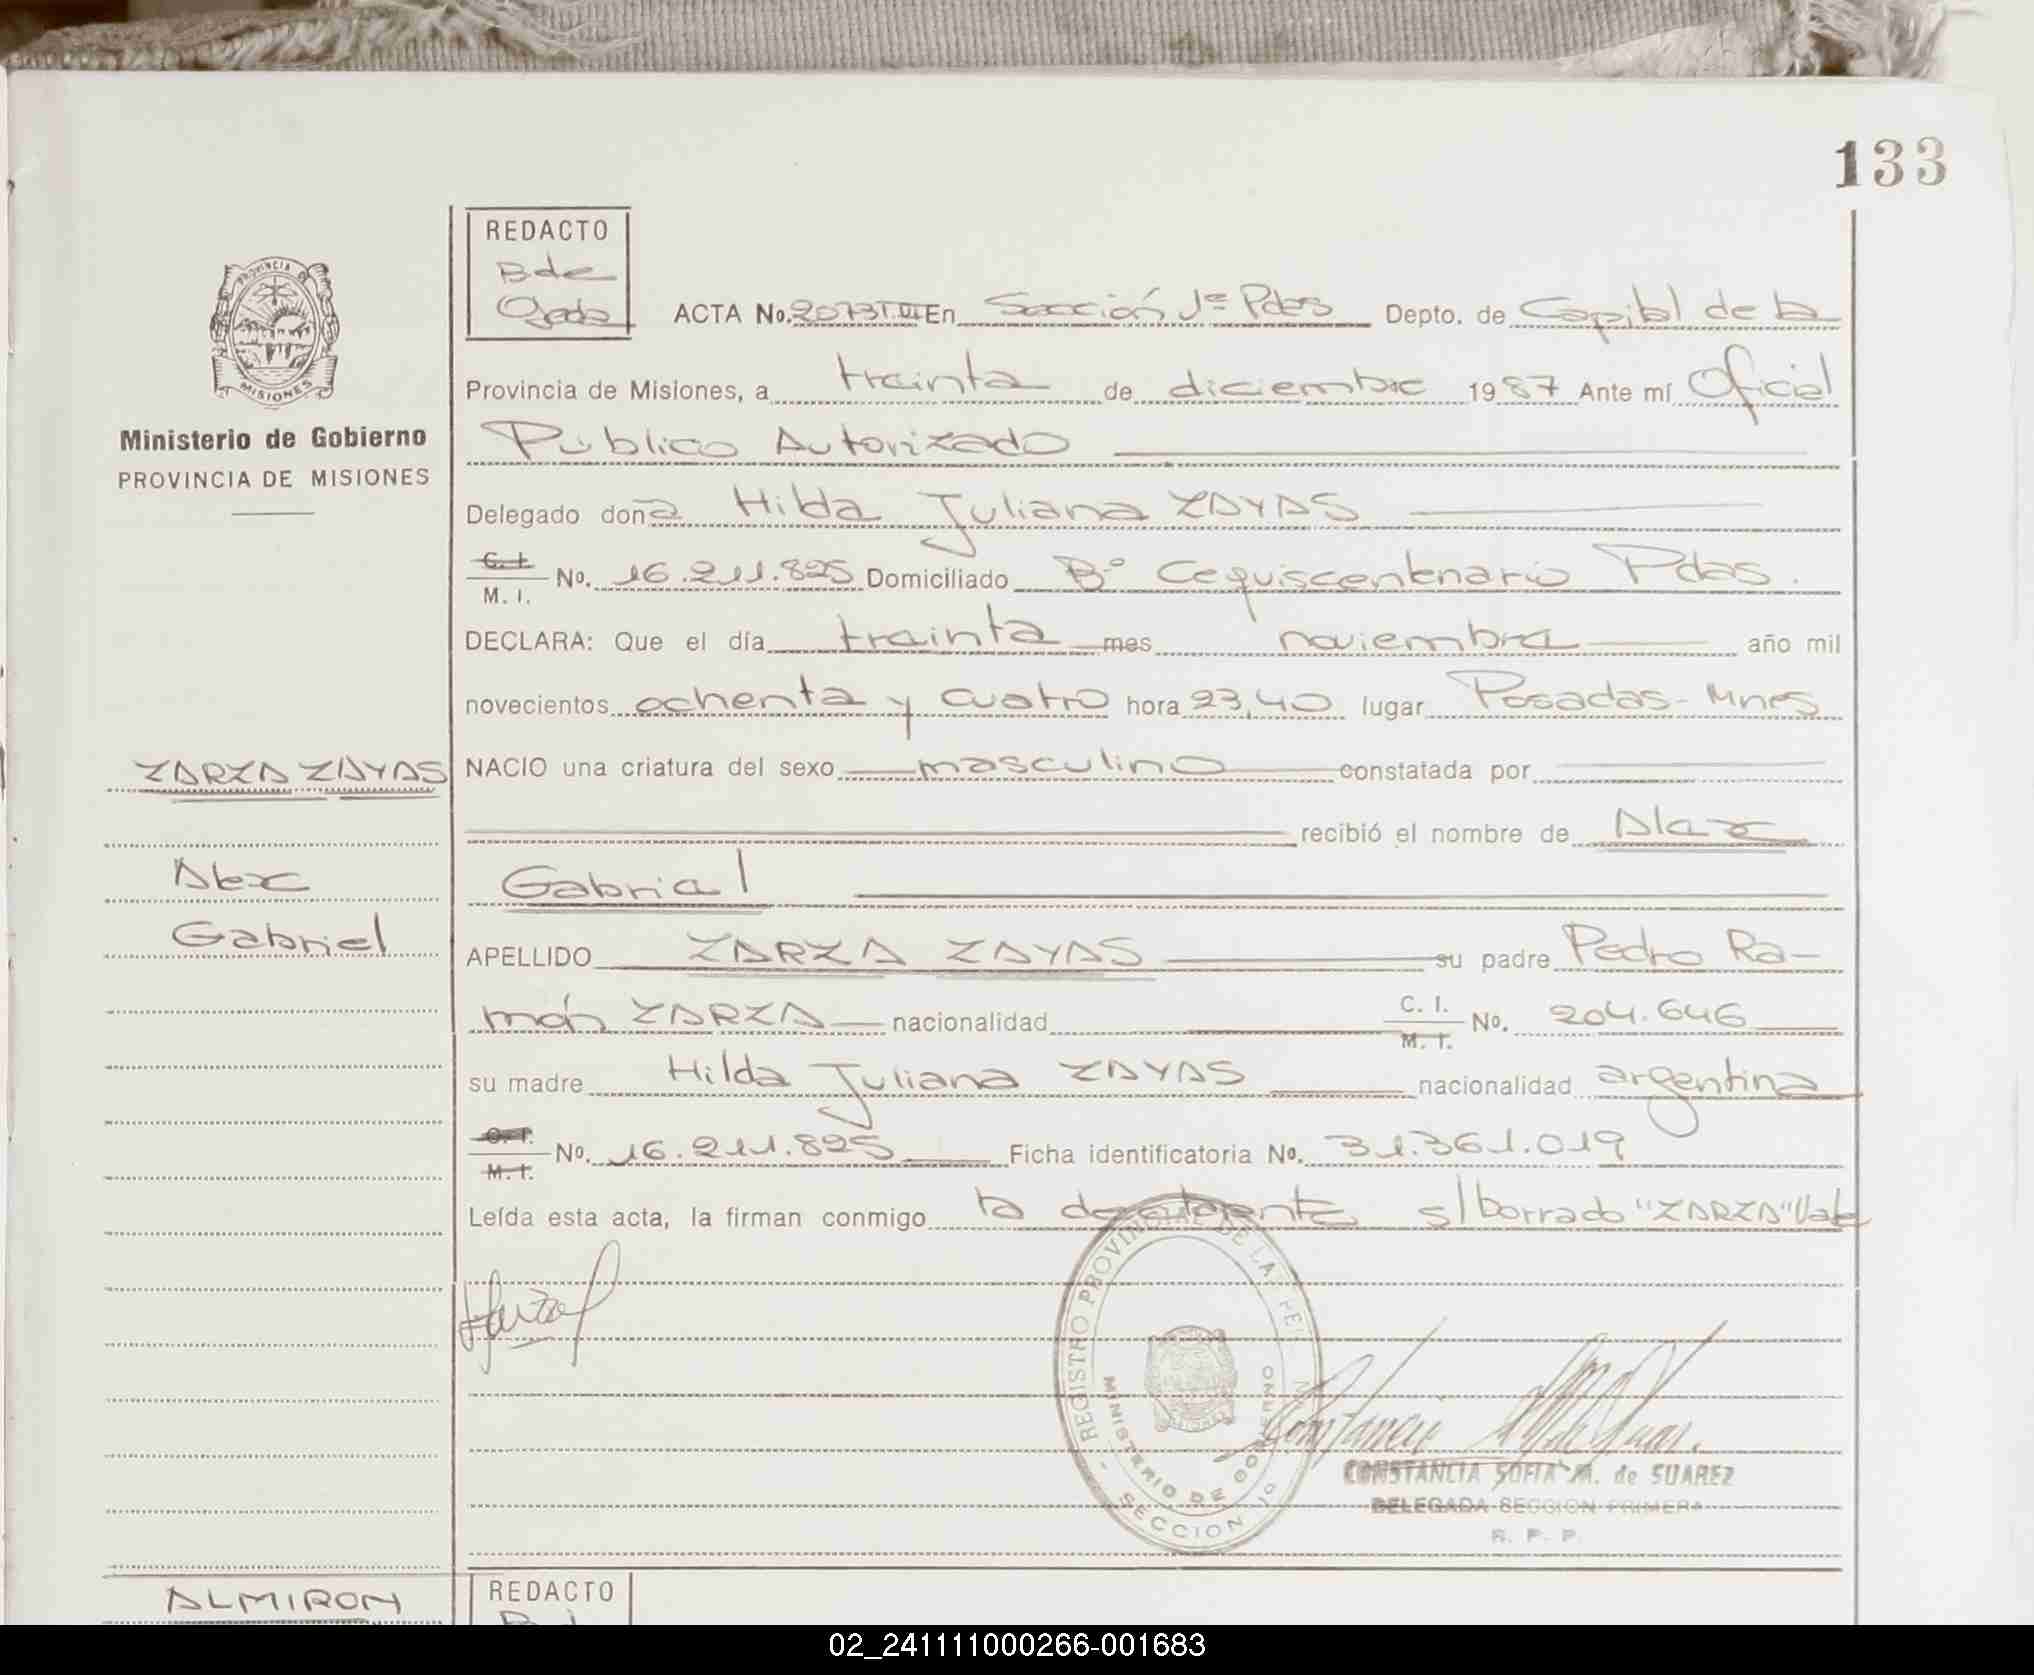 133
REDACTO
B de
Ojeda
ACTA No. 2073 T.VI En Sección 1ª Pdas Depto. de Capital de la
Provincia de Misiones, a treinta de diciembre 1987 Ante mí Oficial
Público Autorizado
Ministerio de Gobierno
PROVINCIA DE MISIONES
Delegado donа Hilda Juliana ZAYAS
C. I.
M. I. No. 16.211.825 Domiciliado Bº Cequiscentenario Pdas.
DECLARA: Que el día treinta mes noviembre año mil
novecientos ochenta y cuatro hora 23,40 lugar Posadas - Mnes
ZARZA ZAYAS
NACIO una criatura del sexo masculino constatada por
recibió el nombre de Alex
Alex
Gabriel
Gabriel
APELLIDO ZARZA ZAYAS su padre Pedro Ra-
món ZARZA nacionalidad C. I. M. I. No. 204.646
su madre Hilda Juliana ZAYAS nacionalidad argentina
C. I.
M. I. No. 16.211.825 Ficha identificatoria No. 31.361.019
Leída esta acta, la firman conmigo la declarante s/borrado "ZARZA" Vale
REGISTRO PROVINCIAL DE LAS PE
MINISTERIO DE GOBIERNO
SECCION 1º
CONSTANCIA SOFIA M. de SUAREZ
DELEGADA SECCION PRIMERA
R. P. P.
ALMIRON
REDACTO
02_241111000266-001683